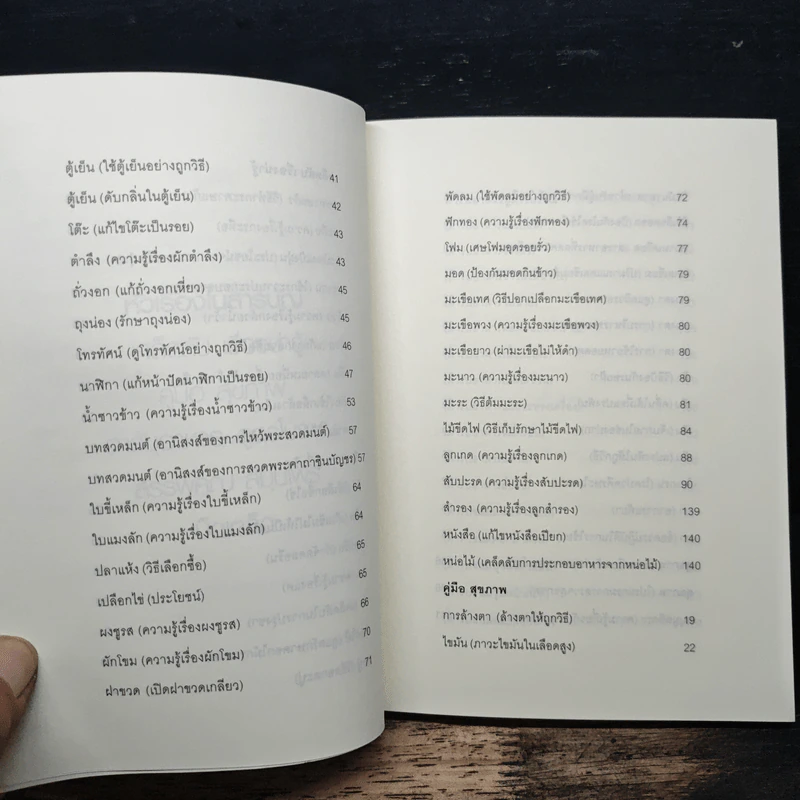 ตู้เย็น (ใช้ตู้เย็นอย่างถูกวิธี) 41
ตู้เย็น (ดับกลิ่นในตู้เย็น) 42
โต๊ะ (แก้ไขโต๊ะเป็นรอย) 43
ตำลึง (ความรู้เรื่องผักตำลึง) 43
ถั่วงอก (แก้ถั่วงอกเหี่ยว) 45
ถุงน่อง (รักษาถุงน่อง) 45
โทรทัศน์ (ดูโทรทัศน์อย่างถูกวิธี) 46
นาฬิกา (แก้หน้าปัดนาฬิกาเป็นรอย) 47
น้ำซาวข้าว (ความรู้เรื่องน้ำซาวข้าว) 53
บทสวดมนต์ (อานิสงส์ของการไหว้พระสวดมนต์) 57
บทสวดมนต์ (อานิสงส์ของการสวดพระคาถาชินบัญชร) 57
ใบขี้เหล็ก (ความรู้เรื่องใบขี้เหล็ก) 64
ใบแมงลัก (ความรู้เรื่องใบแมงลัก) 64
ปลาแห้ง (วิธีเลือกซื้อ) 65
เปลือกไข่ (ประโยชน์) 65
ผงชูรส (ความรู้เรื่องผงชูรส) 66
ผักโขม (ความรู้เรื่องผักโขม) 70
ฝาขวด (เปิดฝาขวดเกลียว) 71
พัดลม (ใช้พัดลมอย่างถูกวิธี) 72
ฟักทอง (ความรู้เรื่องฟักทอง) 74
โฟม (เศษโฟมอุดรอยรั่ว) 77
มอด (ป้องกันมอดกินข้าว) 79
มะเขือเทศ (วิธีปอกเปลือกมะเขือเทศ) 79
มะเขือพวง (ความรู้เรื่องมะเขือพวง) 80
มะเขือยาว (ผ่ามะเขือไม่ให้ดำ) 80
มะนาว (ความรู้เรื่องมะนาว) 80
มะระ (วิธีต้มมะระ) 81
ไม้ขีดไฟ (วิธีเก็บรักษาไม้ขีดไฟ) 84
ลูกเกด (ความรู้เรื่องลูกเกด) 88
สับปะรด (ความรู้เรื่องสับปะรด) 90
สำรอง (ความรู้เรื่องลูกสำรอง) 139
หนังสือ (แก้ไขหนังสือเปียก) 140
หน่อไม้ (เคล็ดลับการประกอบอาหารจากหน่อไม้) 140
คู่มือ สุขภาพ
การล้างตา (ล้างตาให้ถูกวิธี) 19
ไขมัน (ภาวะไขมันในเลือดสูง) 22